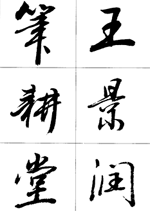 王景润
筆耕堂